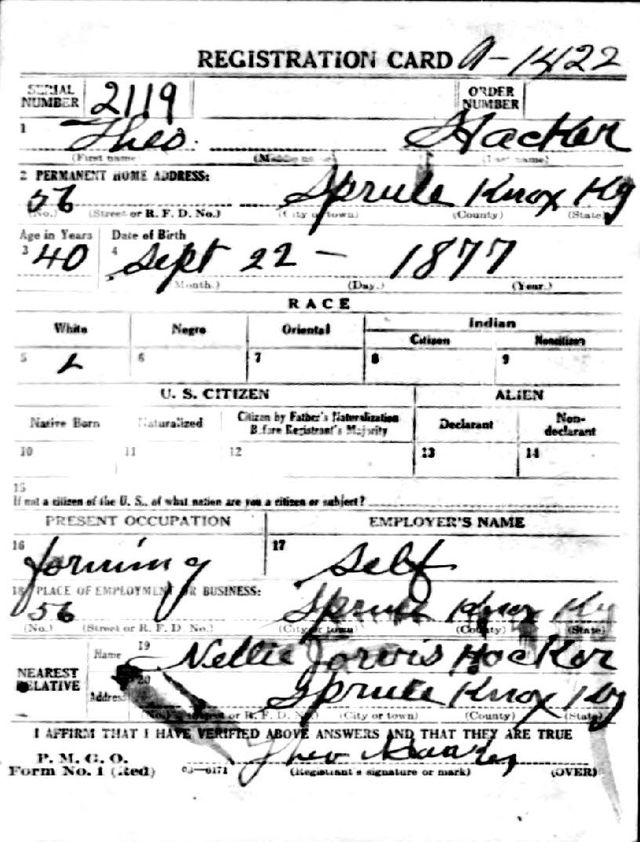 REGISTRATION CARD A-1422
SERIAL NUMBER 2119 ORDER NUMBER
1 Theo. Hacker
(First name) (Middle name) (Last name)
2 PERMANENT HOME ADDRESS:
56 Sprule Knox Ky
(No.) (Street or R. F. D. No.) (City or town) (County) (State)
Age in Years Date of Birth
3 40 4 Sept 22 - 1877
(Month.) (Day.) (Year.)
RACE
White Negro Oriental Indian
Citizen Noncitizen
5 6 7 8 9
U. S. CITIZEN ALIEN
Native Born Naturalized Citizen by Father's Naturalization Before Registrant's Majority Declarant Non-declarant
10 11 12 13 14
15
If not a citizen of the U. S., of what nation are you a citizen or subject?
PRESENT OCCUPATION EMPLOYER'S NAME
16 farming 17 Self
18 PLACE OF EMPLOYMENT OR BUSINESS:
56 Sprule Knox Ky
(No.) (Street or R. F. D. No.) (City or town) (County) (State)
NEAREST RELATIVE
Name 19 Nellie Jarvis Hacker
Address 20 Sprule Knox Ky
(No.) (Street or R. F. D. No.) (City or town) (County) (State)
I AFFIRM THAT I HAVE VERIFIED ABOVE ANSWERS AND THAT THEY ARE TRUE
P. M. G. O.
Form No. 1 (Red) 03-6171 Theo
(Registrant's signature or mark) (OVER)